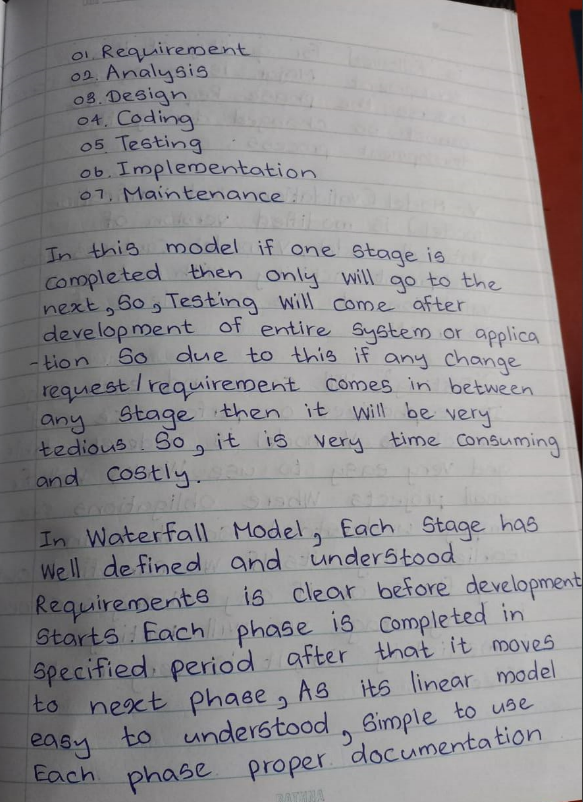 01. Requirement
02. Analysis
03. Design
04. Coding
05 Testing
06. Implementation
07. Maintenance.
In this model if one stage is
completed then only will go to the
next, So, Testing will come after
development of entire system or applica
-tion So due to this if any change
request/requirement comes in between
any stage then it will be very
tedious. So, it is very time consuming
and costly.
In Waterfall Model, Each stage has
well defined and understood
Requirements is clear before development
starts. Each phase is completed in
specified period after that it moves
to next phase, As its linear model
easy to understood, simple to use
Each phase proper documentation